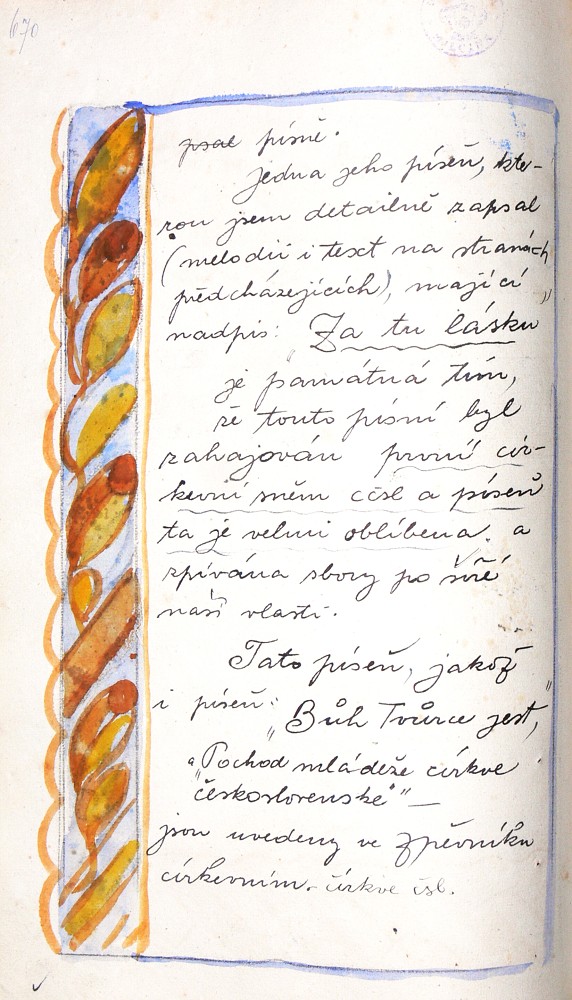 670
psal písně.
Jedna jeho píseň, kte-
rou jsem detailně zapsal
(melodii i text na stranách
předcházejících), mající
nadpis: „Za tu lásku"
je památná tím,
že touto písní byl
zahajován první cír-
kevní sněm ččsl a píseň
ta je velmi oblíbena. a
zpívána sbory po šíři
naší vlasti.
Tato píseň, jakož
i píseň: „Bůh Tvůrce jest,"
a „Pochod mládeže církve
československé" —
jsou uvedeny ve Zpěvníku
církevním. církve čsl.